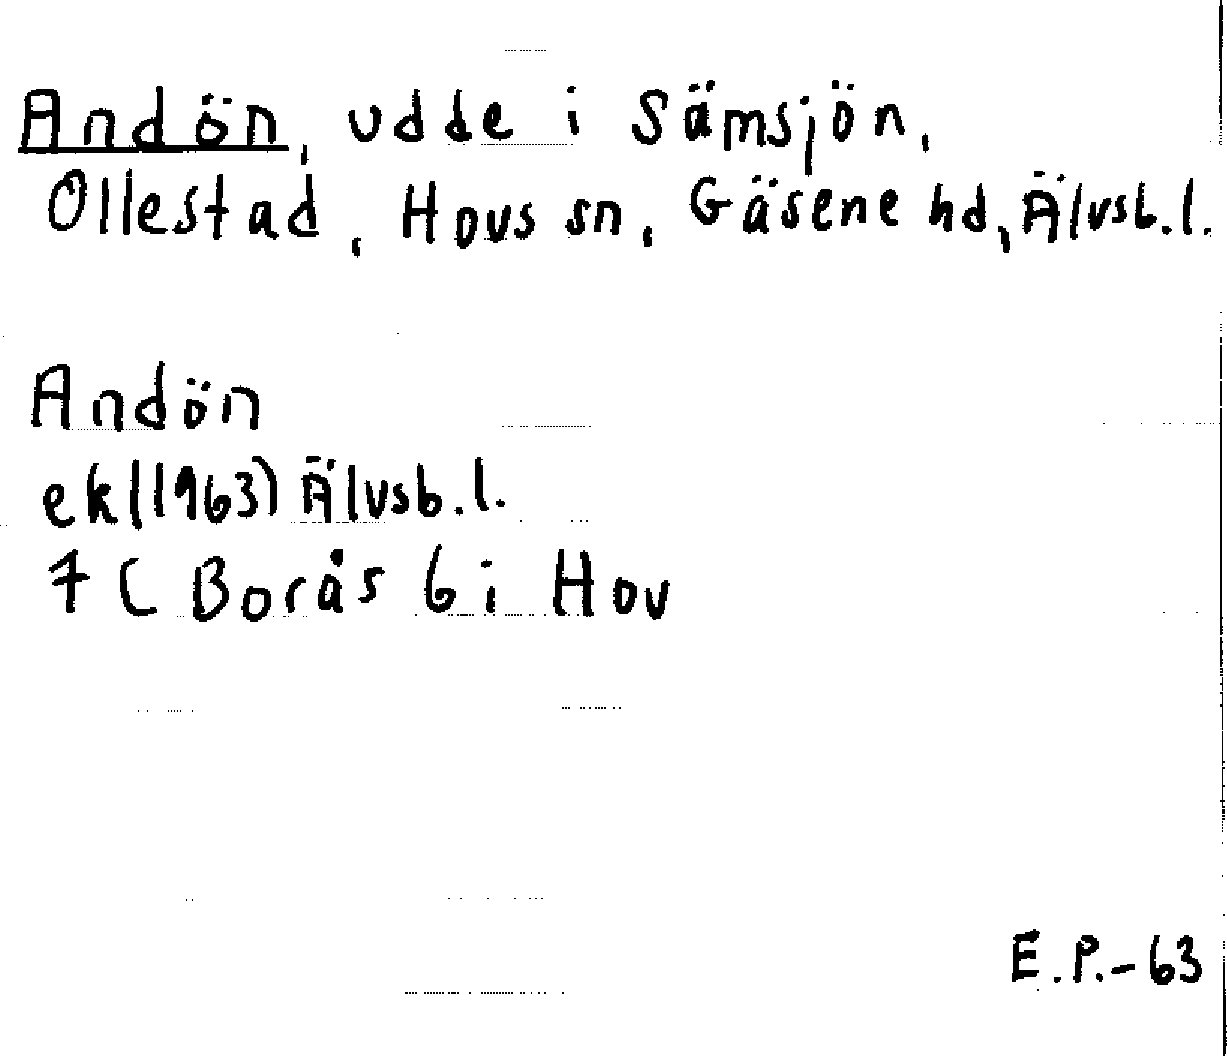 Andön, udde i Sämsjön,
Ollestad, Hovs sn, Gäsene hd, Älvsb.l.
Andön
ek(1963) Älvsb.l.
7C Borås 6i Hov
E.P.-63